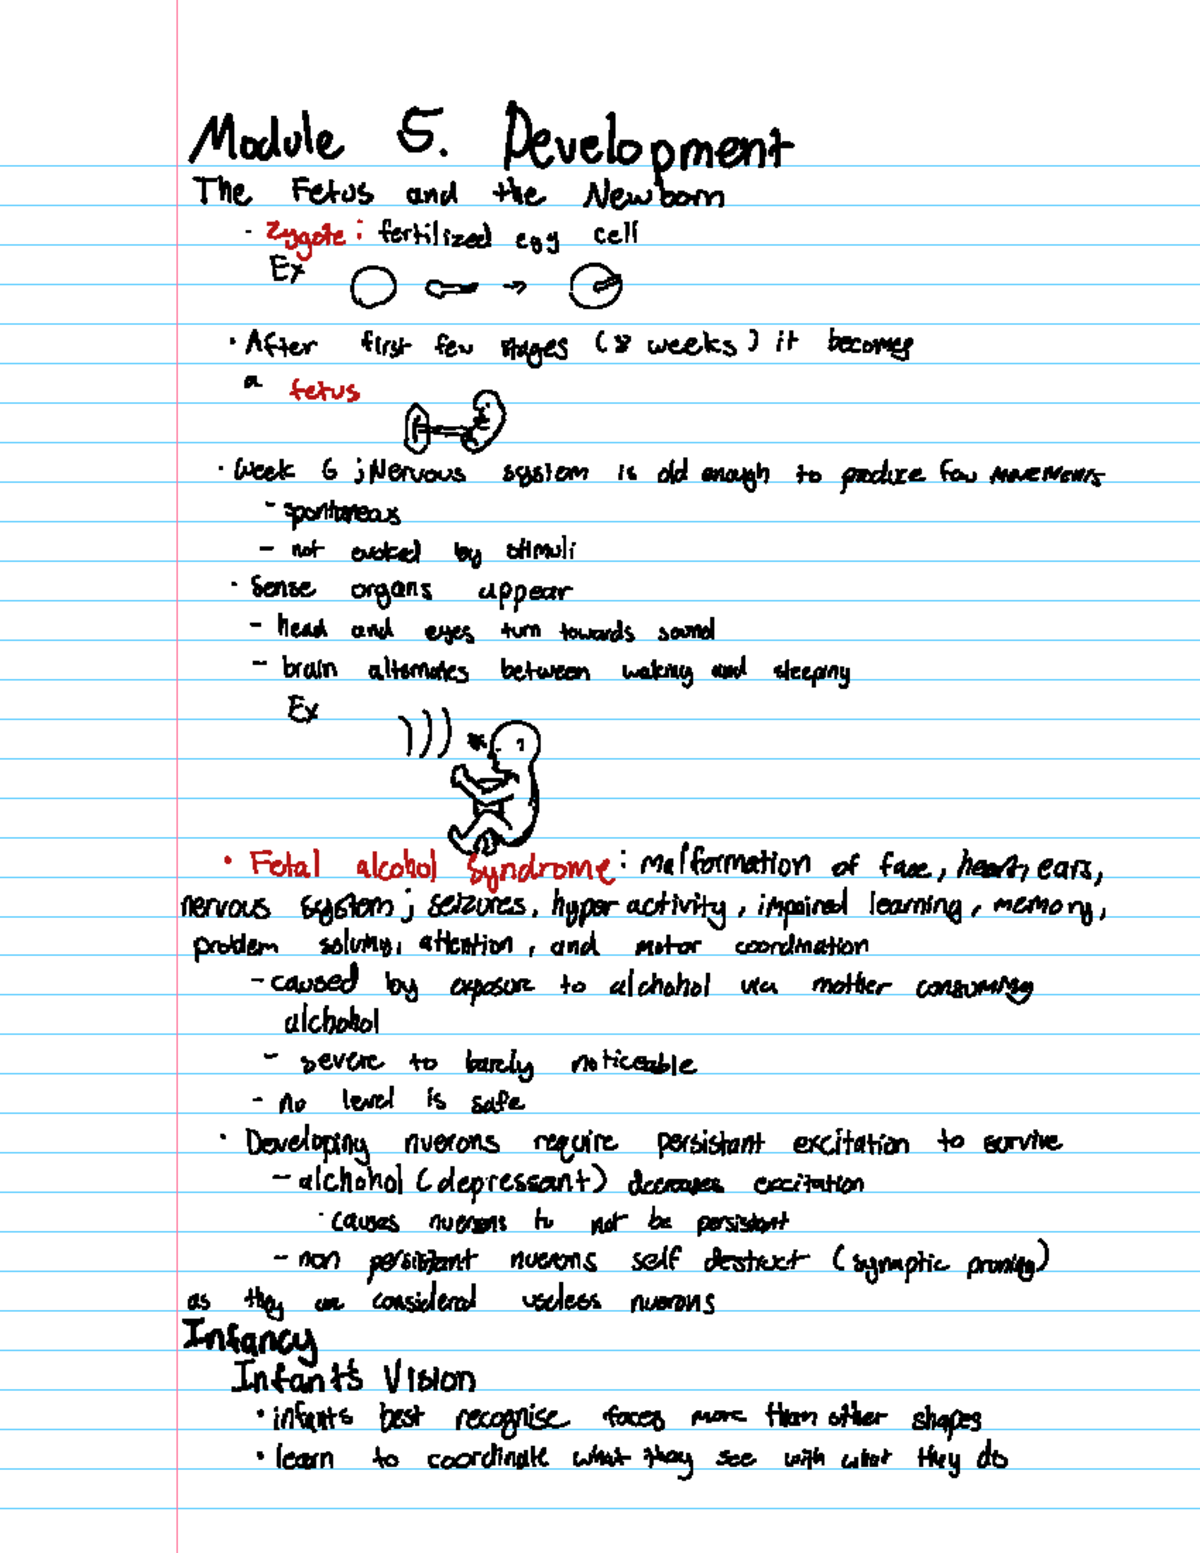 Module 5. Development
The Fetus and the Newborn
- Zygote: fertilized egg cell
Ex →
· After first few stages (8 weeks) it becomes
a fetus
· Week 6 ; Nervous system is old enough to produce few movements
- spontaneous
- not evoked by stimuli
· Sense organs appear
- head and eyes turn towards sound
- brain alternates between waking and sleeping
Ex
· Fetal alcohol Syndrome: malformation of face, heart, ears,
nervous system; seizures, hyper activity, impaired learning, memory,
problem solving, attention, and motor coordination
- caused by exposure to alchohol via mother consuming
alchohol
- severe to barely noticeable
- no level is safe
· Developing nuerons require persistant excitation to survive
- alchohol (depressant) decreases excitation
· causes nuerons to not be persistant
- non persistant nuerons self destruct (synaptic pruning)
as they are considered useless nuerons
Infancy
Infant's Vision
· infants best recognise faces more than other shapes
· learn to coordinate what they see with what they do